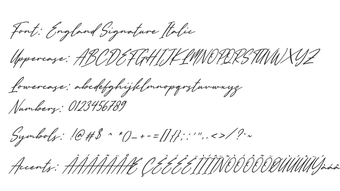 Font: England Signature Italic
Uppercase: ABCDEFGHIJKLMNOPQRSTUVWXYZ
Lowercase: abcdefghijklmnopqrstuvwxyz
Numbers: 0123456789
Symbols: !@#$ ^ *()_+-=[]{};:'",.<>/?·~
Accents: